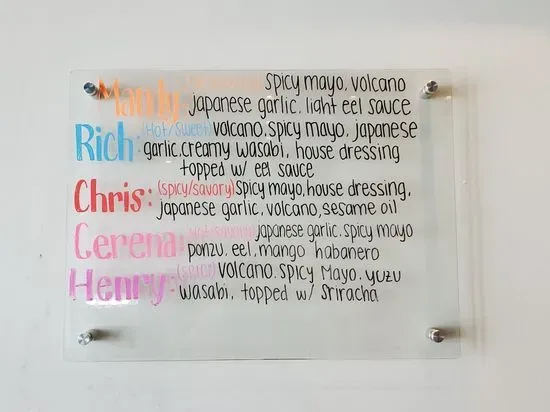 Mandy: spicy mayo, volcano
japanese garlic, light eel sauce
Rich: (Hot/Sweet) volcano, spicy mayo, japanese
garlic, creamy wasabi, house dressing
topped w/ eel sauce
Chris: (spicy/savory) spicy mayo, house dressing,
japanese garlic, volcano, sesame oil
Cerena: japanese garlic, spicy mayo
ponzu, eel, mango habanero
Henry: (spicy) volcano, spicy Mayo, yuzu
wasabi, topped w/ Sriracha